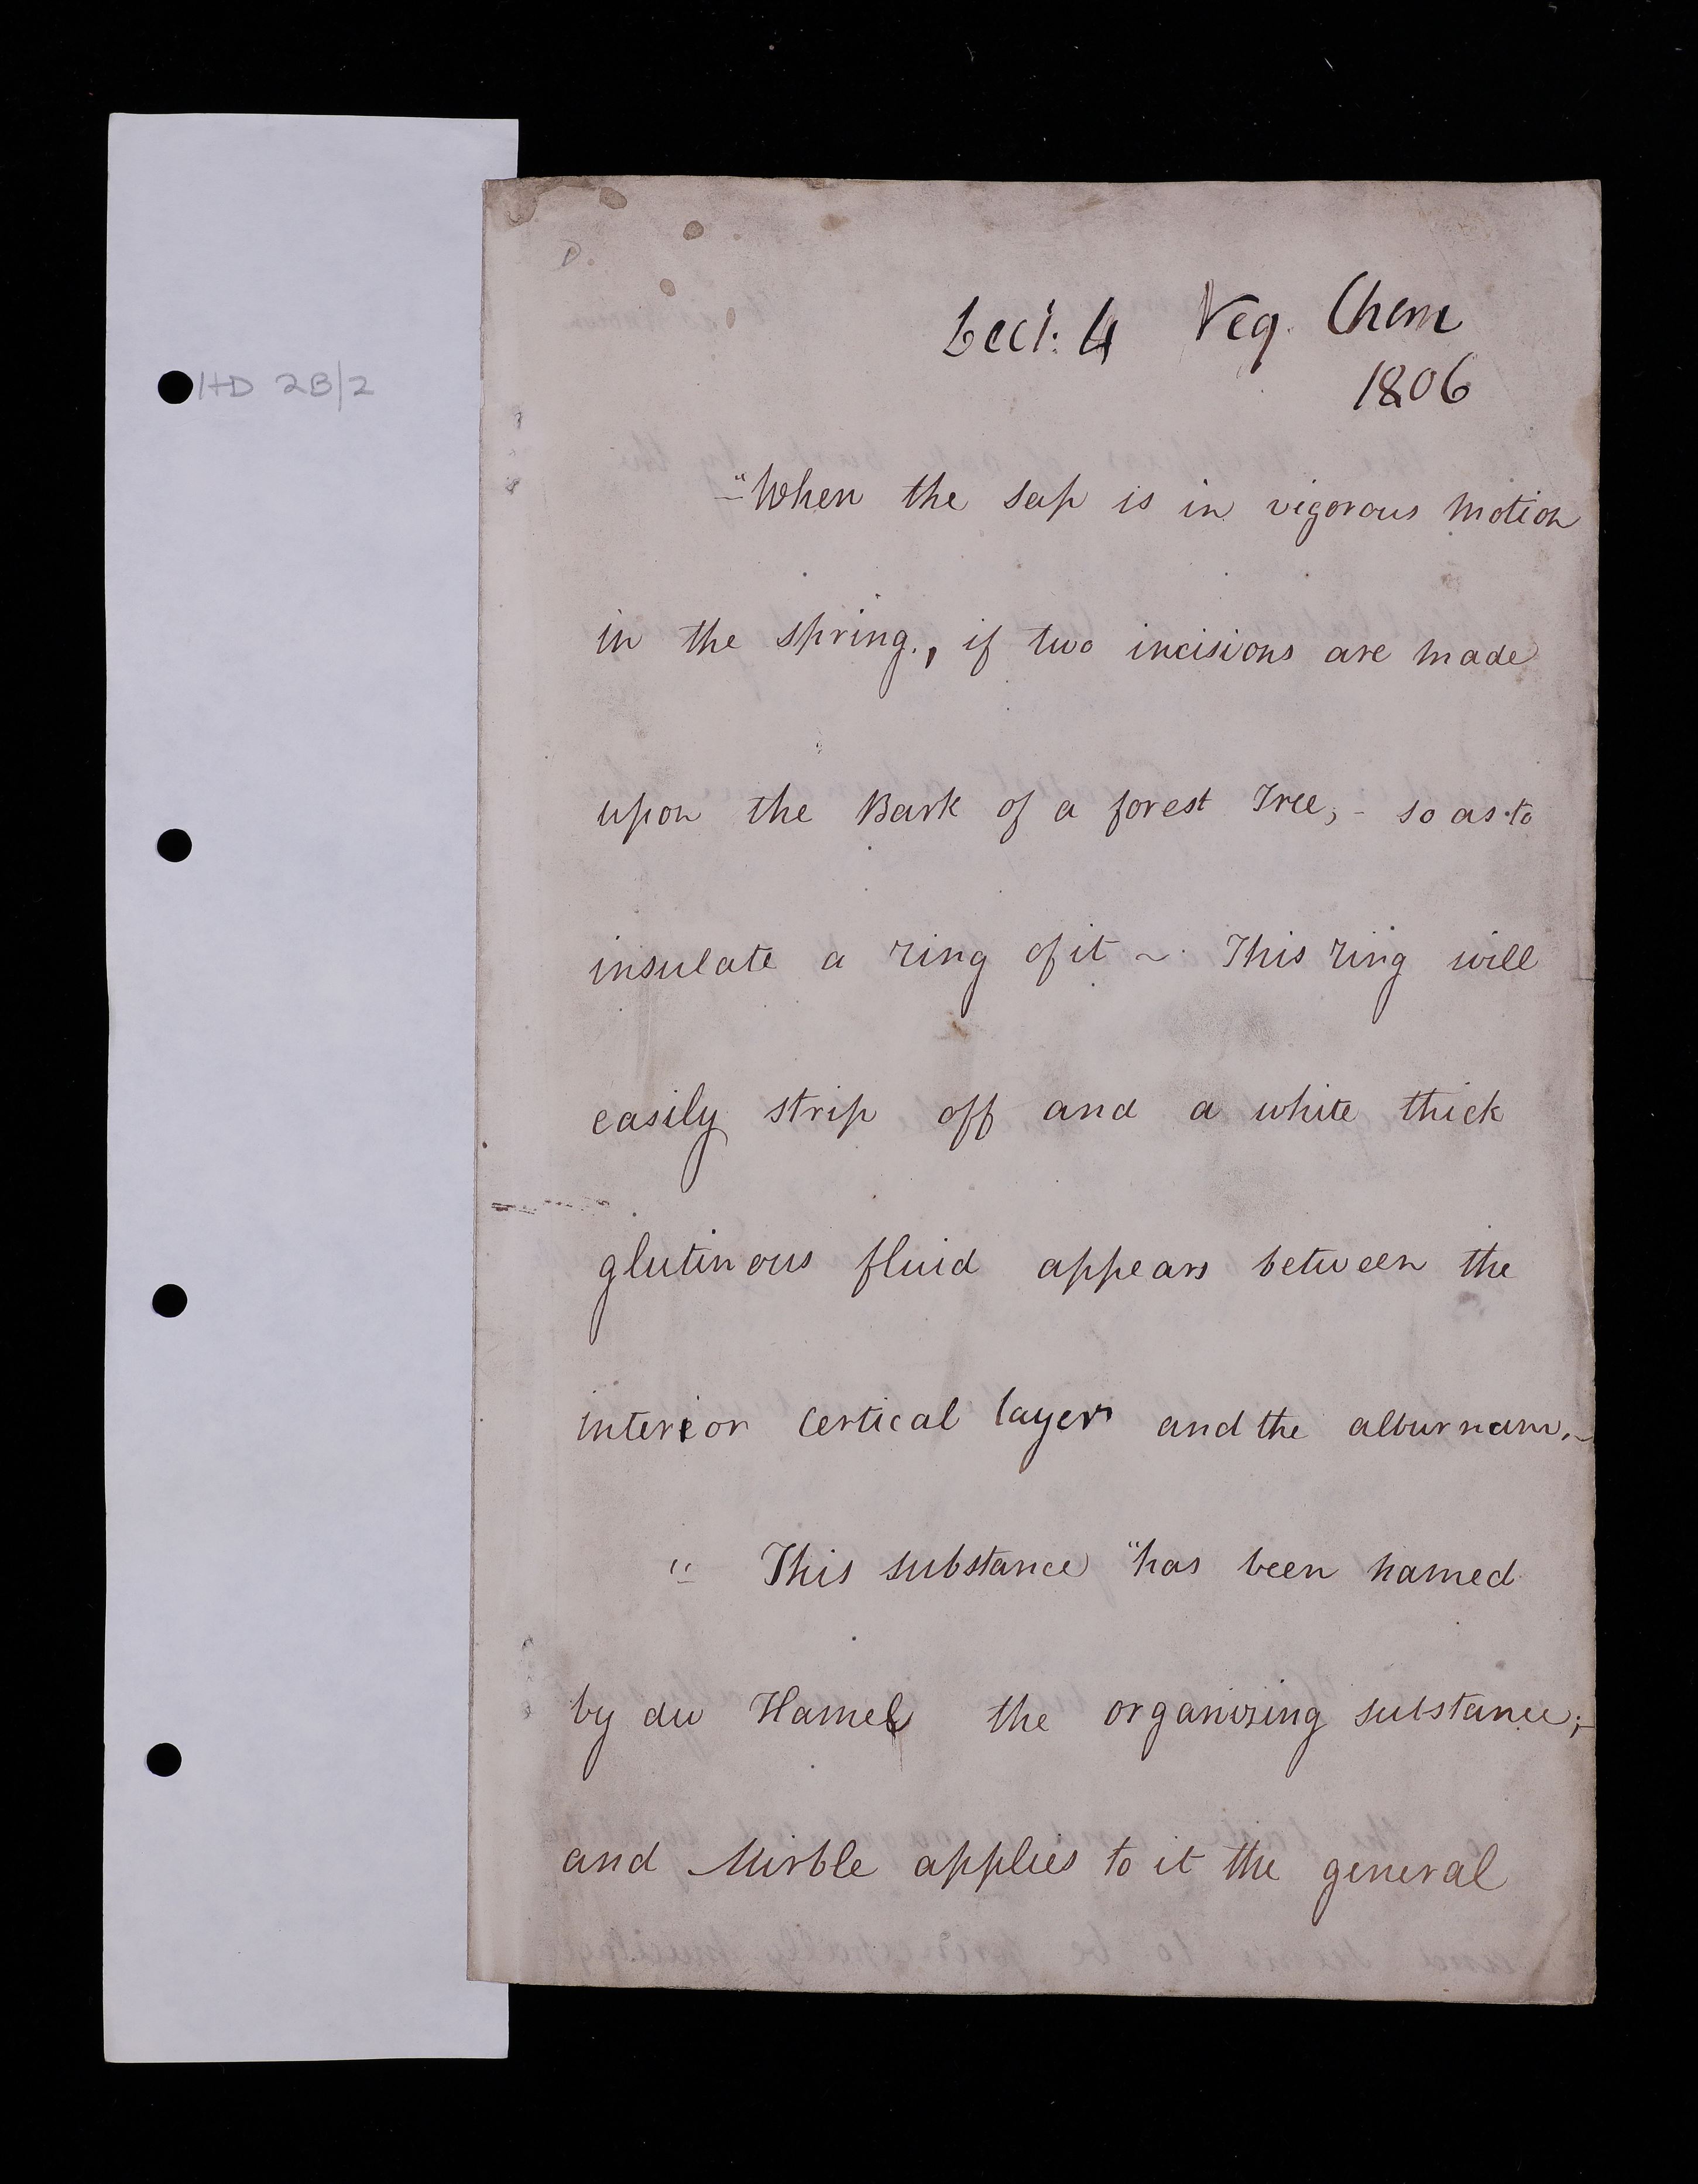 HD 2B/2
D.
Lect: 4 Veg. Chem
1806
"When the sap is in vigorous motion
in the spring., if two incisions are made
upon the Bark of a forest Tree, - so as to
insulate a ring of it ~ This ring will
easily strip off and a white thick
glutinous fluid appears between the
interior Certical layer and the alburnam. -
" This substance "has been named
by du Hamel the organizing substance; -
and Mirble applies to it the general